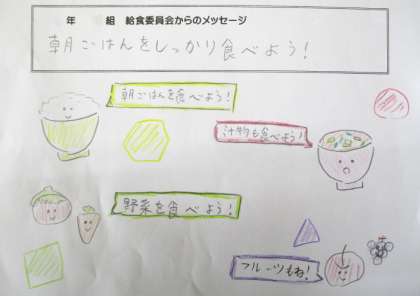 年　組　給食委員会からのメッセージ
朝ごはんをしっかり食べよう！
朝ごはんを食べよう！
汁物も食べよう！
野菜を食べよう！
フルーツもね！